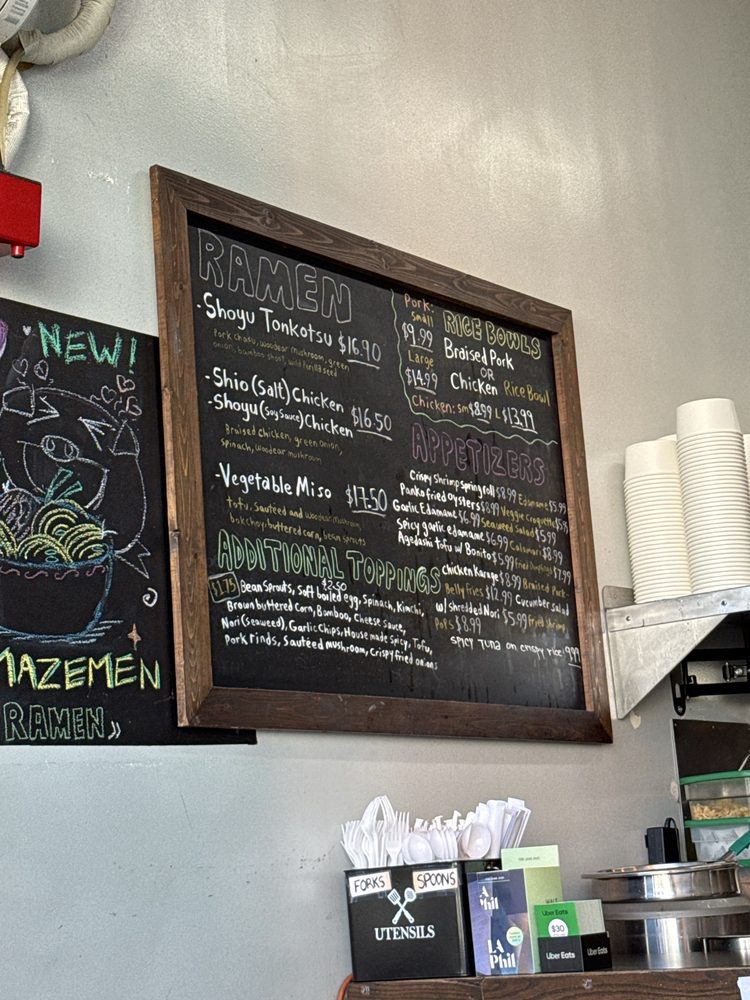 NEW!
MAZEMEN
RAMEN
RAMEN
-Shoyu Tonkotsu $16.90
Pork chasu, woodear mushroom, green
onion, bamboo shoot,
-Shio (Salt) Chicken
-Shoyu (Soy Sauce) Chicken $16.50
Braised chicken, green onion,
spinach, woodear mushroom
-Vegetable Miso $17.50
tofu, sauteed and woodear mushroom,
bokchoy, buttered corn, bean sprouts
ADDITIONAL TOPPINGS
$1.75 Bean Sprouts, Soft boiled egg, $2.50 Spinach, Kimchi,
Brown buttered Corn, Bamboo, Cheese Sauce,
Nori (seaweed), Garlic Chips, House made Spicy, Tofu,
Pork Rinds, Sauteed mushroom, Crispy fried onions
Pork:
Small
$9.99
Large
$14.99
RICE BOWLS
Braised Pork
OR
Chicken Rice Bowl
Chicken: sm $8.99 L $13.99
APPETIZERS
Crispy Shrimp spring roll $8.99 Edamame $5.95
Panko fried Oysters $8.99 Veggie Croquette
Garlic Edamame $6.99 Seaweed Salad $5.99
Spicy garlic edamame $6.99 Calamari $8.99
Agedashi tofu w/ Bonito $5.99 Fried Dumplings $7.99
Chicken Karage $8.99 Braised Pork
Belly fries $12.99 Cucumber Salad
w/ shredded Nori $5.99 Fried Shrimp
Pops $8.99
Spicy Tuna on crispy rice 9.99
FORKS
SPOONS
UTENSILS
LA
Phil
LA
Phil
Uber Eats
$30
Uber Eats
Uber Eats